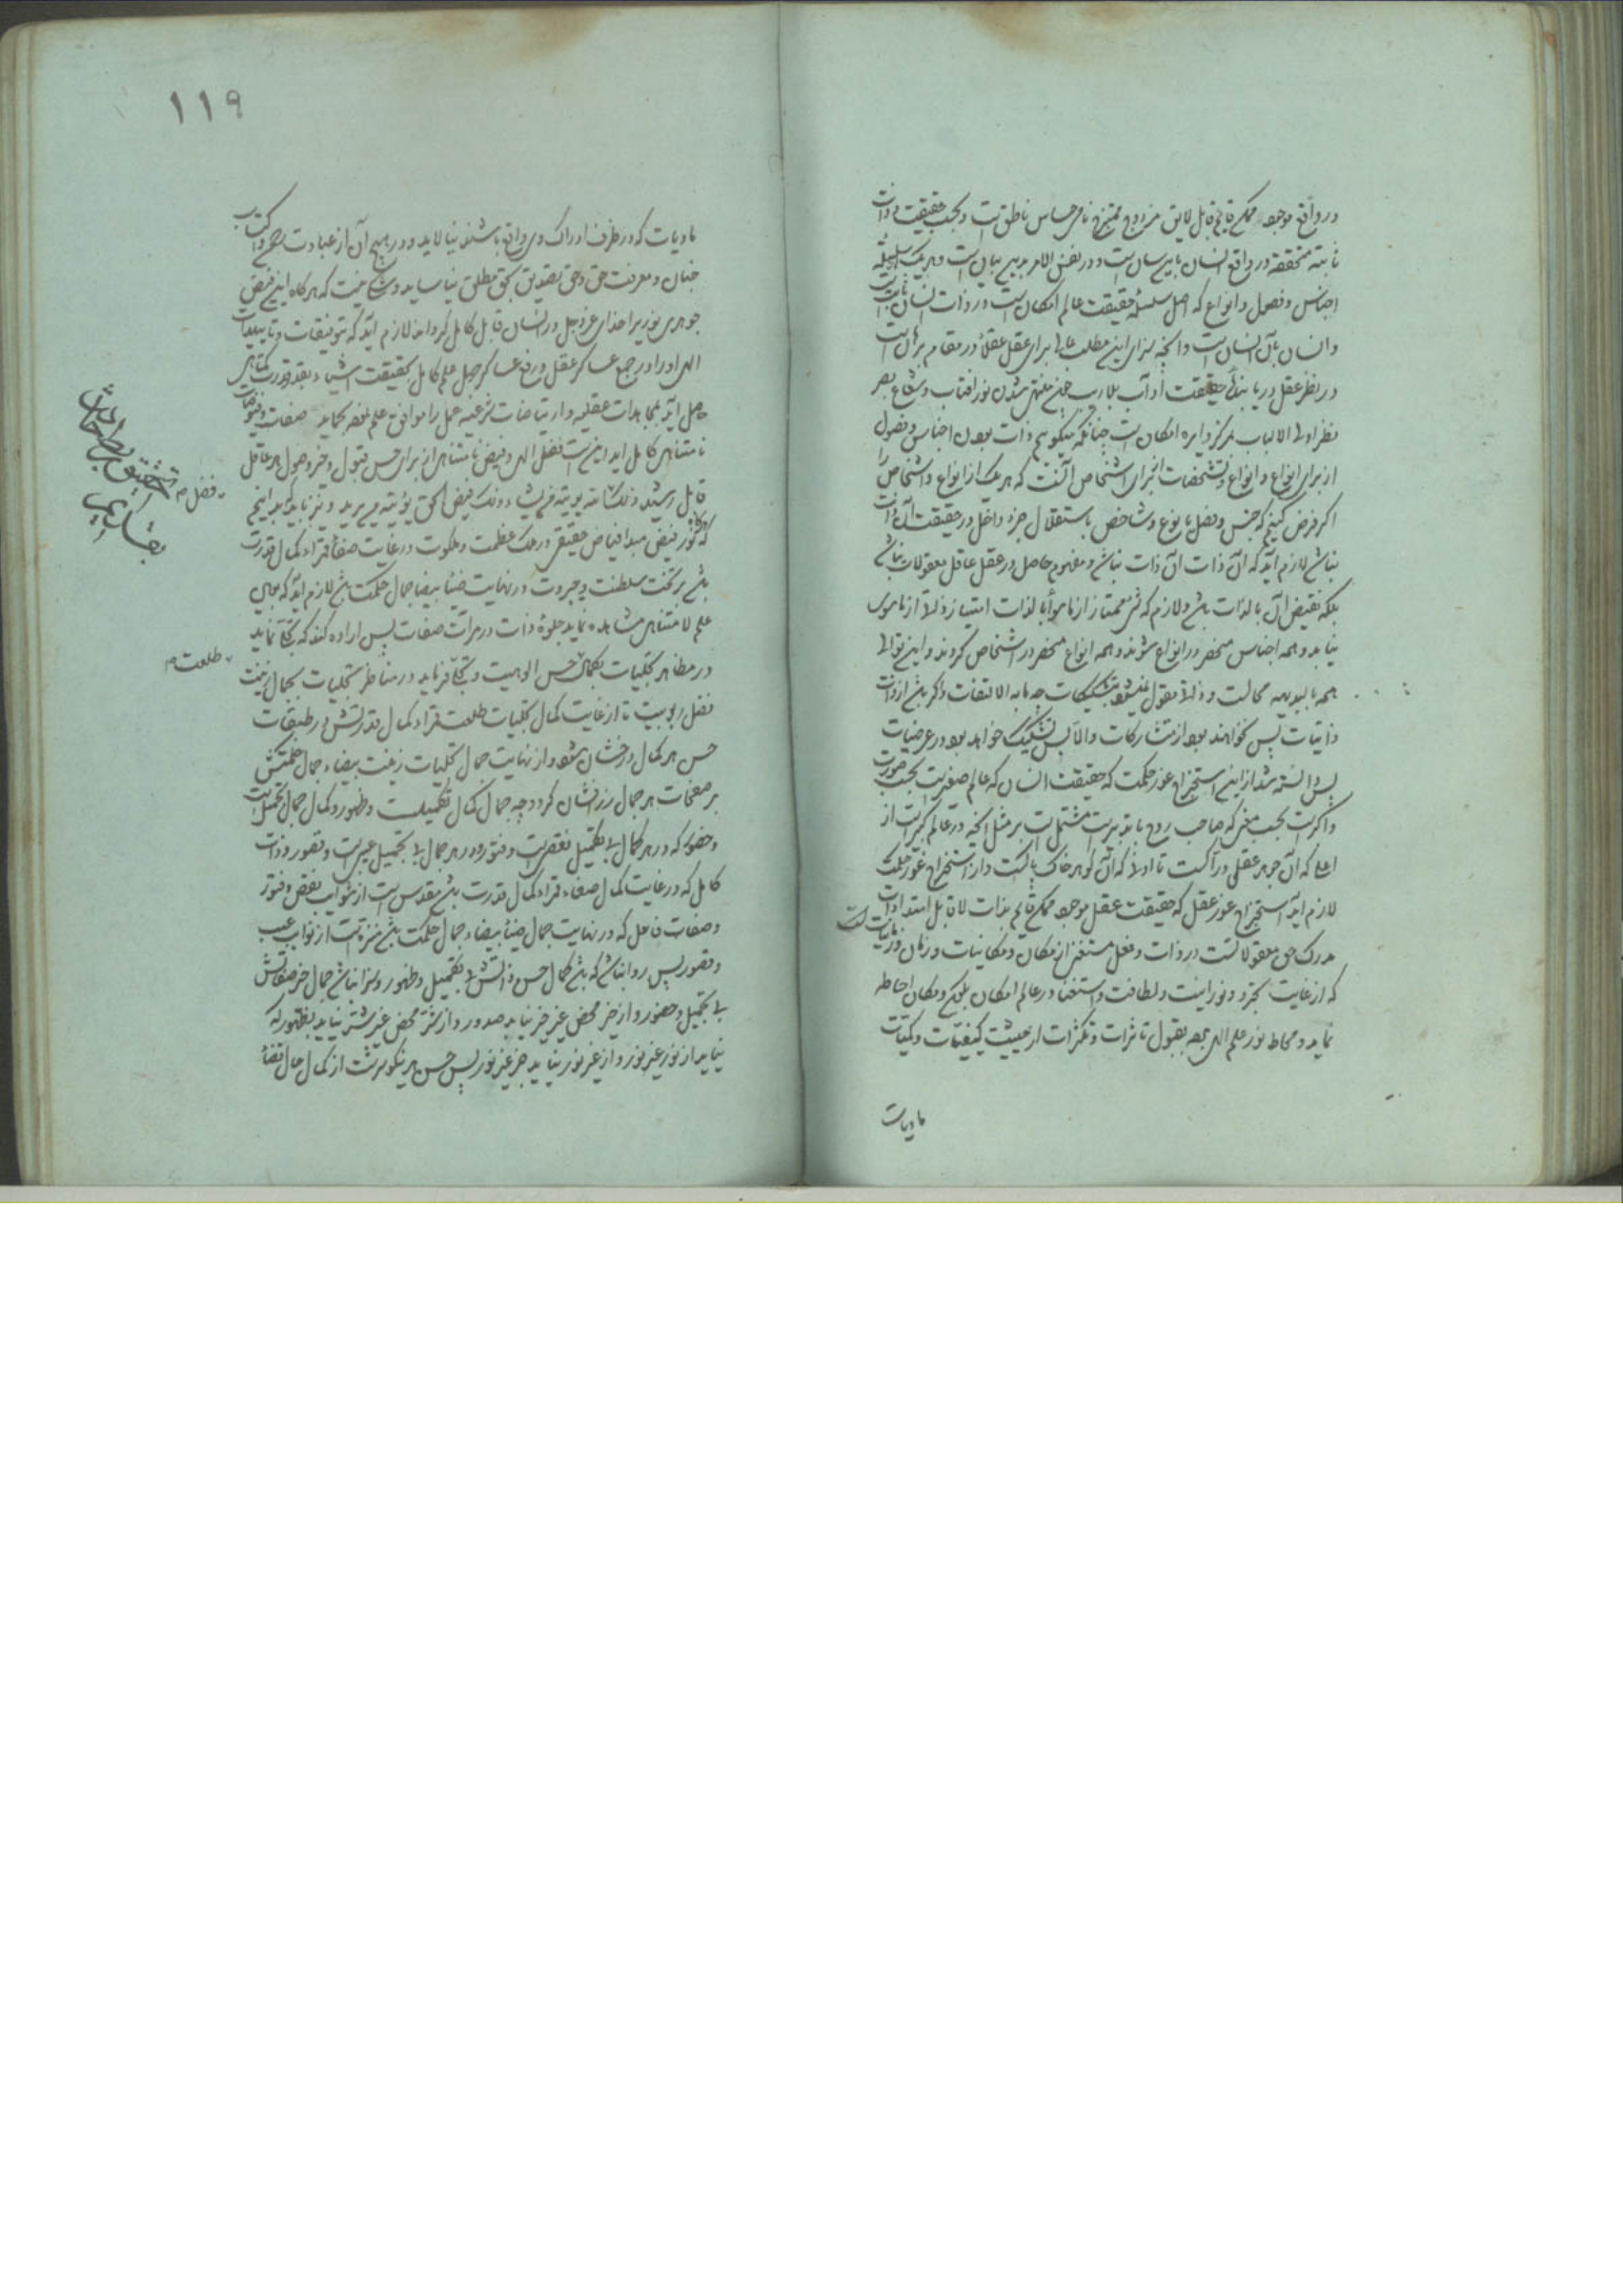 در واقع موجود ممکن قایم قابل لایق مزدوج ممتزج نامی حساس ناطق است و بحسب حقیقت ذات
ثابته متحققه در واقع انسان باین سان است و در نفس الامر بدین بیان است و هر یک سلسله
اجناس و فصول و انواع که اصل سلسله حقیقت عالم امکان است در ذات انسان ثابت است
و انسان بآن انسان است و آنچه سزای این مطلب عالی برای عقل عقلا در مقام برهان است
در نظر عقل دریابندگی حقیقت آداب بلاریب چون منتهی شدن نور افتاب و شعاع بصر
نظر اولی الالباب بمرکز دایره امکان است چنانکه میگویم ذات بودن اجناس و فصول
از برای انواع و انواع و تشخصات از برای اشخاص آنست که هر یک از انواع و اشخاص را
اگر فرض کنیم که جنس و فصل یا نوع و شاخص باستقلال جزء داخل در حقیقت آن ذات
نباشد لازم آید که آن ذات آن ذات نباشد و مفهوم حاصل در عقل عاقل معقولات نباشد
بلکه نقیض آن بالذات باشد و لازم که شی ممتاز از ماسوا بالذات امتیاز ذاتا از ماسوی
نیابد و همه اجناس منحصر در انواع شوند و همه انواع منحصر در اشخاص گردند و این توالی
همه بالبدیهه محالست و ذاتا مقول نمیشود بتشکیکات چه مابه الاتفاق ذاکر باشد از ذات
ذاتیات پس نخواهند بود از متشارکات والا پس تشکیک خواهد بود در عرضیات
پس دانسته شد از این استخراج غور حکمت که حقیقت انسان که عالم صغیر است بحسب صورت
و اکبر است بحسب معنی که صاحب روح با تدبیر است مشتمل است بر مثل آنچه در عالم کبیر است از
اعلی که آن جوهر عقلی دراک است تا ادنی که آن گوهر خاک پاکست و از استخراج غور حکمت
لازم آید استخراج غور عقل که حقیقت عقل موجود ممکن قایم بذات لا قابل امتدادات
مدرک حق معقولاتست در ذات و فعل مستغنی از مکان و مکانیات و زمان و زمانیات است
که از غایت تجرد و نورانیت و لطافت و استغنا در عالم امکان بلون و مکان احاطه
نماید و محاط نور علم الهی بود بقبول تاثرات و تکثرات از حیثیت کیفیات و کمیات
مادیات
١١٩
مادیات که در ظرف ادراک وی واقع باشند نیالاید و در هیچ آن از عبادت رحمن و اکتساب
جنان و معرفت حق و حق تصدیق بحق مطلق نیاساید و شک نیست که هرگاه این فیض
جوهری نورپیرا خدای عزوجل در انسان قابل کامل گرداند لازم آید که بتوفیقات و تاییدات
الهی او را در جمع عساکر عقل و رفع عساکر جهل علم کامل بحقیقت اشیاء بقدر قدرت متناهی
حاصل آید بمجاهدات عقلیه و ارتیاضات شرعیه عمل را موافق علم بفعل نماید صفات و فیوضات
نامتناهی کامل آید این است فضل الهی و فیض نامتناهی از برای حسن قبول و خیر وصول هر عاقل
قابل رشید ذلک فضل الله یؤتیه من یشاء و ذلک فیض الحق یؤتیه من یرید و نیز باید که بداین هم
که هرگاه نور فیض مبدا فیاض حقیقی در ملک عظمت و ملکوت در غایت صفاء قراء کمال قدرت
باشد بر تخت سلطنت و جبروت در نهایت ضیاء بیضا جمال حکمت باشد لازم آید که بحسب
علم لا متناهی مشاهده نماید جلوه ذات در مرآت صفات پس اراده کند که تجلی نماید
در مظاهر تجلیات بکمال حسن الوهیت و تجلی فرماید در مناظر تجلیات بجمال زینت
فضل ربوبیت تا از غایت کمال تجلیات طلعت قراء کمال قدرتش در طبقات
حسن هر کمال درخشان شود و از نهایت جمال تجلیات زینت بیضاء جمال حکمتش
بر صفحات هر جمال زرافشان گردد چه جمال کمال تکمیلست و ظهور و کمال جمال تجمیل است
و حضور که در هر کمال بی تکمیل نقص است و فتور و در هر جمال بی تجمیل عیب است و قصور و ذات
کامل که در غایت کمال صفاء قراء کمال قدرت باشد مقدس است از شوایب نقص و فتور
و صفات فاعل که در نهایت جمال ضیاء بیضاء جمال حکمت باشد منزه است از نوایب عیب
و قصور پس روا نباشد که باشد کمال حسن ذاتش بی تکمیل و ظهور و سزا نباشد جمال خیر صفاتش
بی تجمیل و حضور و از خیر محض غیر خیر نیاید صدور و از شر محض غیر شر نیاید بظهور که
نیاید از نور غیر نور و از غیر نور نیاید جز غیر نور پس حسن هر نیکو سرشت از کمال جمال قضاء
فضل م
طلعت م